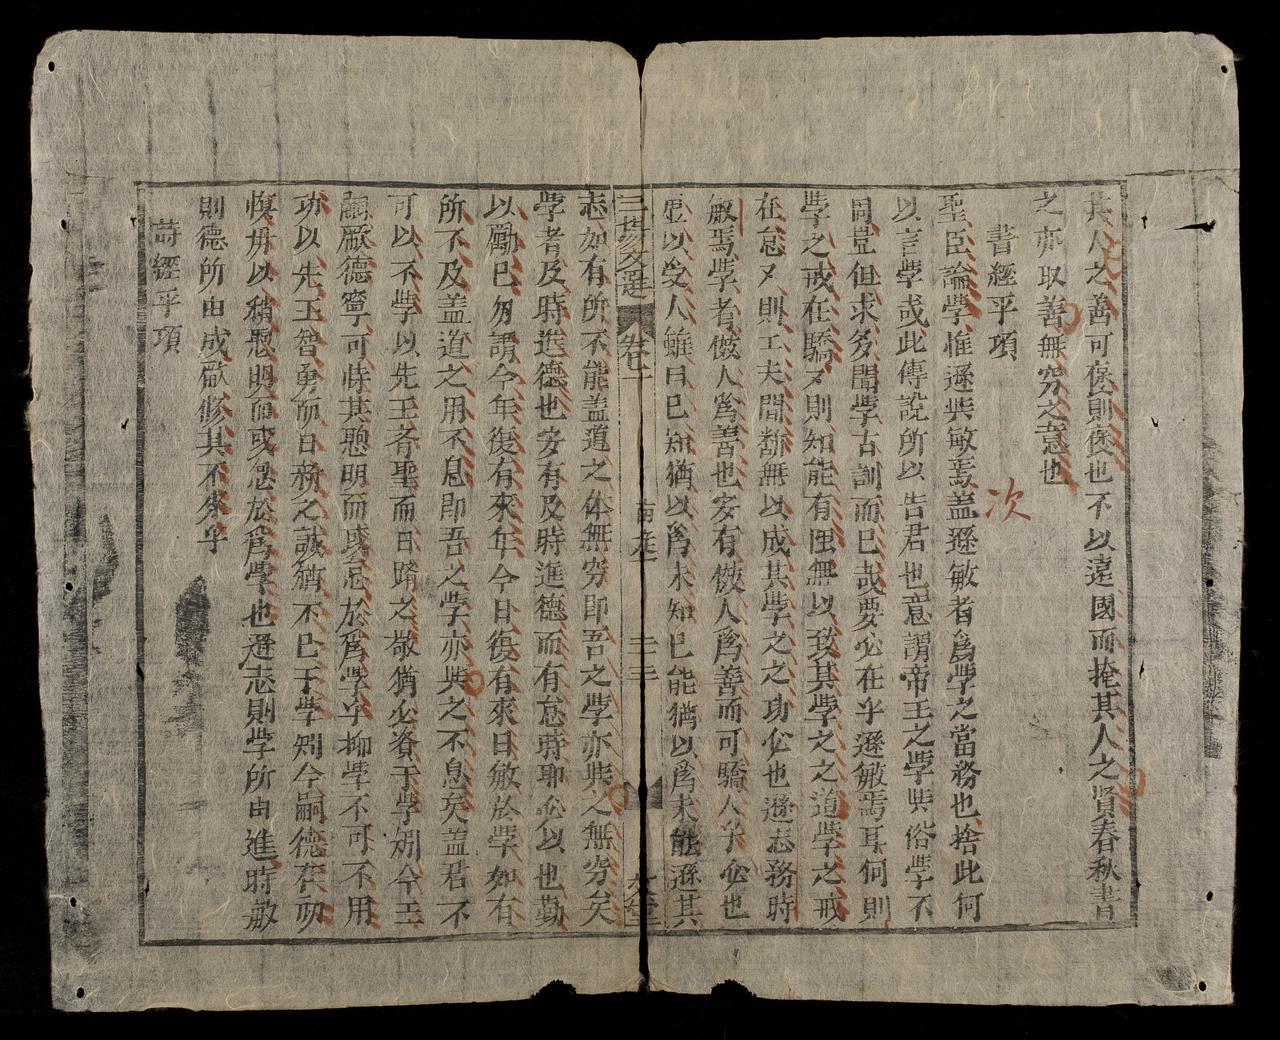 其人之善可褒則褒也不以遠國而掩其人之賢春秋書
之亦取善無穷之意也
書經平項
次
聖臣論學惟遜與敏焉盖遜敏者爲學之當務也捨此何
以言學或此傳說所以告君也意謂帝王之學與俗學不
同豈但求多聞學古訓而已哉要必在乎遜敏焉耳何則
學之戒在驕又則知能有限無以致其學之之道學之戒
在怠又則工夫間斷無以成其學之之功必也遜志務時
敏焉學者傲人爲善也安有傲人爲善而可驕人乎必也
虚以受人雖曰已知猶以爲未知已能猶以爲未能遜其
三塲文選 卷十 南 二十三 文堂
志如有所不能盖道之体無穷即吾之學亦與之無穷矣
學者及時進德也安有及時進德而有怠時耶必以也勤
以勵己勿謂今年復有來年今日復有來日敏於學如有
所不及盖道之用不息即吾之學亦與之不息矣盖君不
可以不學以先王齐聖而日躋之敬猶必咨于學矧今王
嗣厥德寧可恃其聰明而或怠於爲學乎抑學不可不用
功以先王智勇而日務之誠猶不已于學矧今嗣德在初
慎毋以稍聰明而或怠於爲學也遜志則學所由進時敏
則德所由成厥修其不來乎
詩經平項